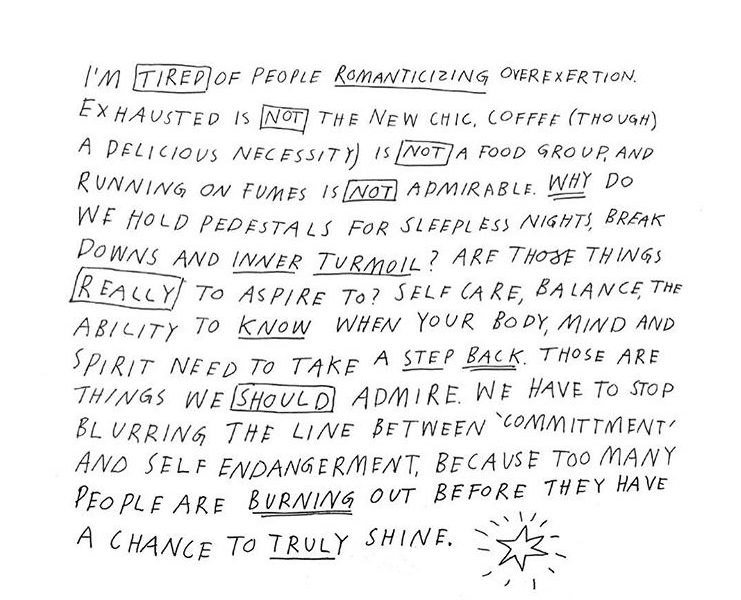 I'M TIRED OF PEOPLE ROMANTICIZING OVEREXERTION.
EXHAUSTED IS NOT THE NEW CHIC, COFFEE (THOUGH)
A DELICIOUS NECESSITY) IS NOT A FOOD GROUP, AND
RUNNING ON FUMES IS NOT ADMIRABLE. WHY DO
WE HOLD PEDESTALS FOR SLEEPLESS NIGHTS, BREAK
DOWNS AND INNER TURMOIL? ARE THOSE THINGS
REALLY TO ASPIRE TO? SELF CARE, BALANCE, THE
ABILITY TO KNOW WHEN YOUR BODY, MIND AND
SPIRIT NEED TO TAKE A STEP BACK. THOSE ARE
THINGS WE SHOULD ADMIRE. WE HAVE TO STOP
BLURRING THE LINE BETWEEN 'COMMITTMENT'
AND SELF ENDANGERMENT, BECAUSE TOO MANY
PEOPLE ARE BURNING OUT BEFORE THEY HAVE
A CHANCE TO TRULY SHINE.